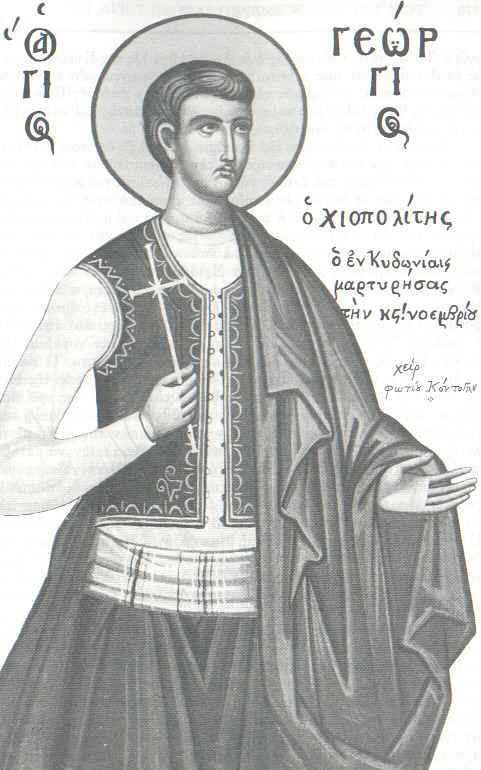 ὁ ἍΓΙΟϹ
ΓΕΩΡΓΙΟϹ
ὁ χιοπολίτης
ὁ ἐν Κυδωνίαις
μαρτυρήσας
τὴν κςʹ νοεμβρίου
χείρ
φωτίου Κόντογλου